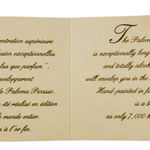 entration supérieure
sion exceptionnelles.
lus que parfum",
nveloppement
e Paloma Picasso.
été réalisé en édition
monde entier.
à l'or fin.
The Paloma
is exceptionally long
and totally alcoho
will envelop you in the m
Hand-painted in f
is a to
as only 7,000